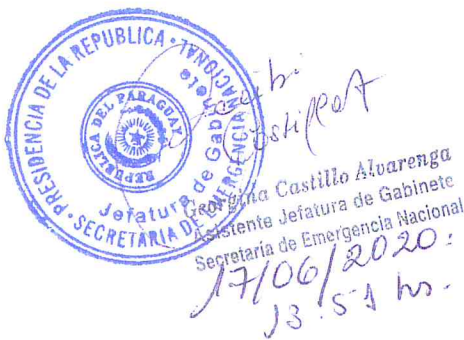 PRESIDENCIA DE LA REPUBLICA
SECRETARIA DE EMERGENCIA NACIONAL
REPUBLICA DEL PARAGUAY
Jefatura de Gabinete
Georgina Castillo Alvarenga
Asistente Jefatura de Gabinete
Secretaria de Emergencia Nacional
17/06/2020.
13:51 hs.